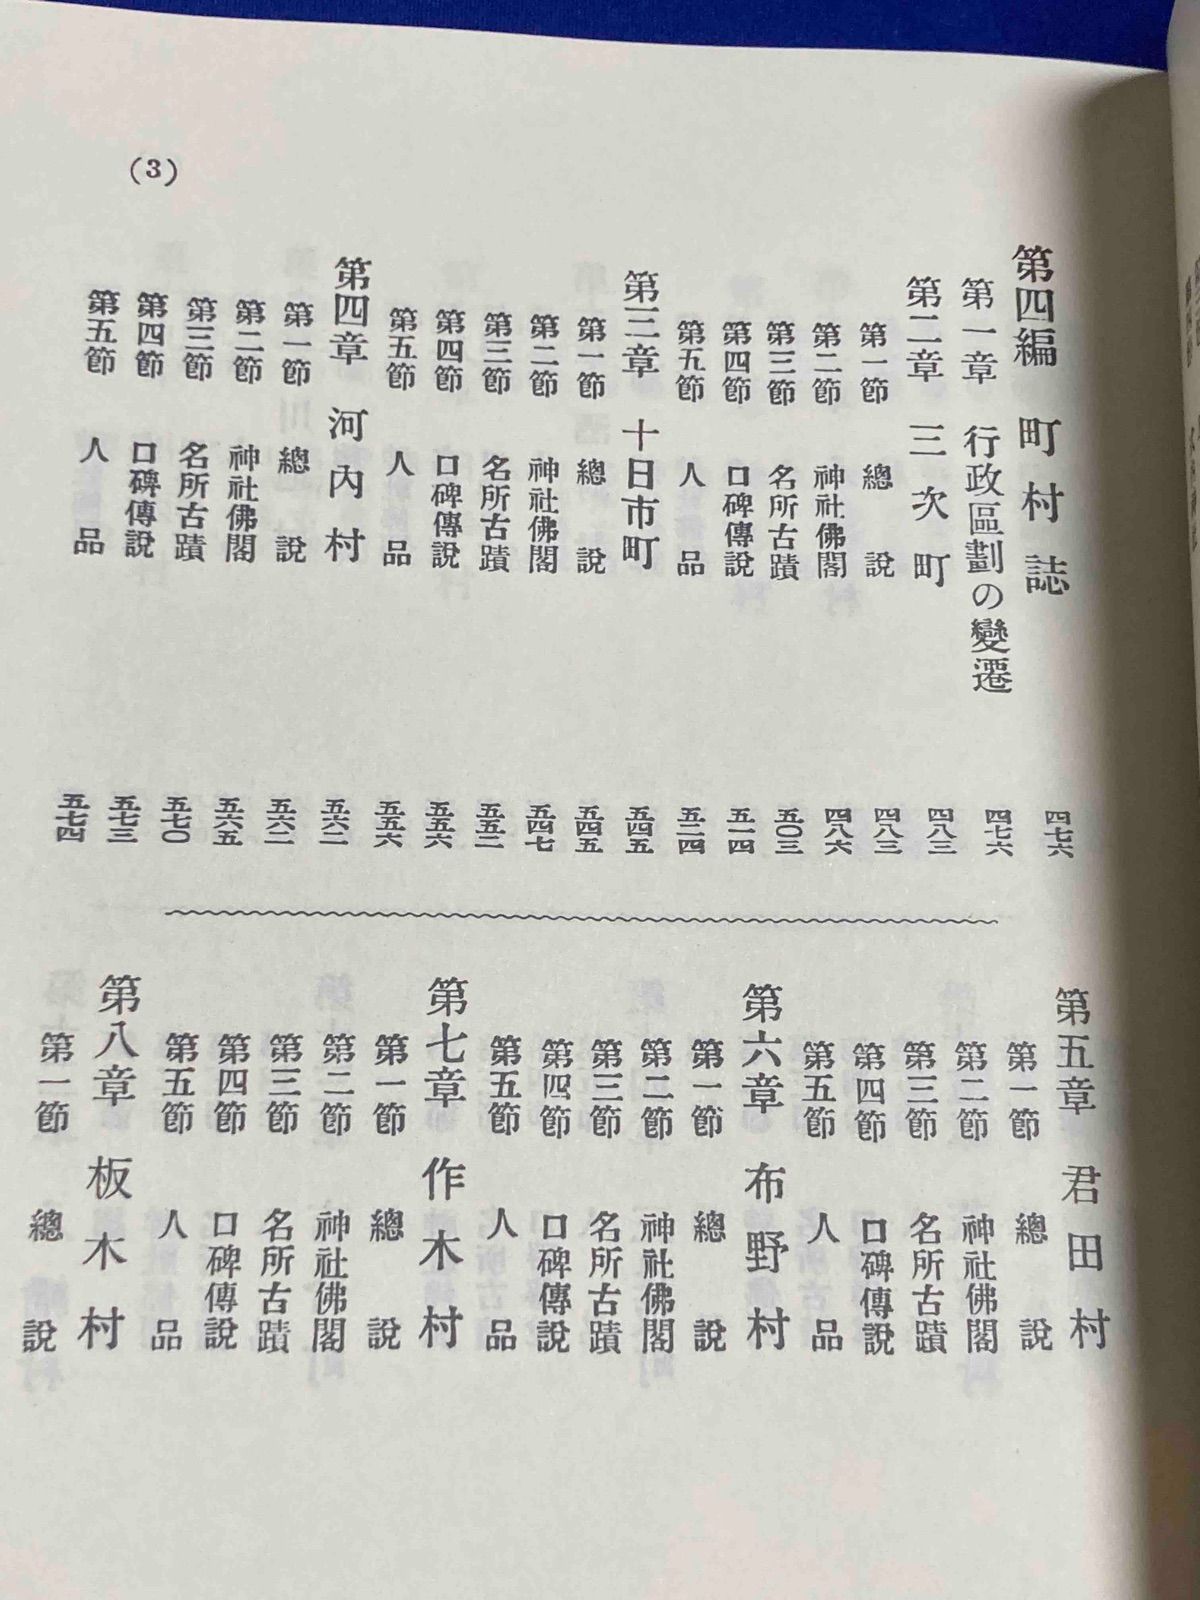 (3)
第四編 町村誌 四七六
第一章 行政區劃の變遷 四七六
第二章 三次町 四八三
第一節 總說 四八三
第二節 神社佛閣 四八六
第三節 名所古蹟 五〇三
第四節 口碑傳說 五一四
第五節 人品 五二四
第三章 十日市町 五四五
第一節 總說 五四五
第二節 神社佛閣 五四七
第三節 名所古蹟 五五二
第四節 口碑傳說 五五六
第五節 人品 五五六
第四章 河內村 五六二
第一節 總說 五六二
第二節 神社佛閣 五六五
第三節 名所古蹟 五七〇
第四節 口碑傳說 五七三
第五節 人品 五七四
第五章 君田村
第一節 總說
第二節 神社佛閣
第三節 名所古蹟
第四節 口碑傳說
第五節 人品
第六章 布野村
第一節 總說
第二節 神社佛閣
第三節 名所古蹟
第四節 口碑傳說
第五節 人品
第七章 作木村
第一節 總說
第二節 神社佛閣
第三節 名所古蹟
第四節 口碑傳說
第五節 人品
第八章 板木村
第一節 總說